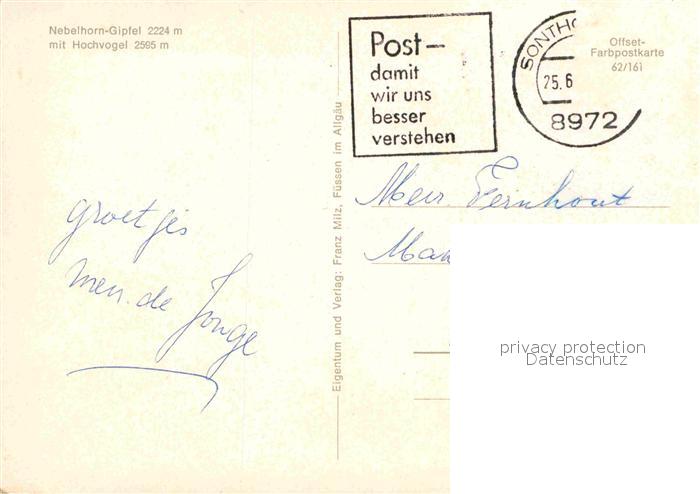 Nebelhorn-Gipfel 2224 m
mit Hochvogel 2595 m
Post-
damit
wir uns
besser
verstehen
SONTHO
25.6
8972
Offset-
Farbpostkarte
62/161
Eigentum und Verlag: Franz Milz, Füssen im Allgäu
groetjes
men. de Jonge
Mevr. Fernhout
Man
privacy protection
Datenschutz